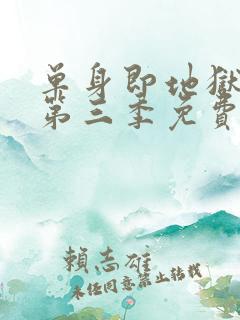 单身即地獄
第三季免費
賴志雄
未任同意禁止转载